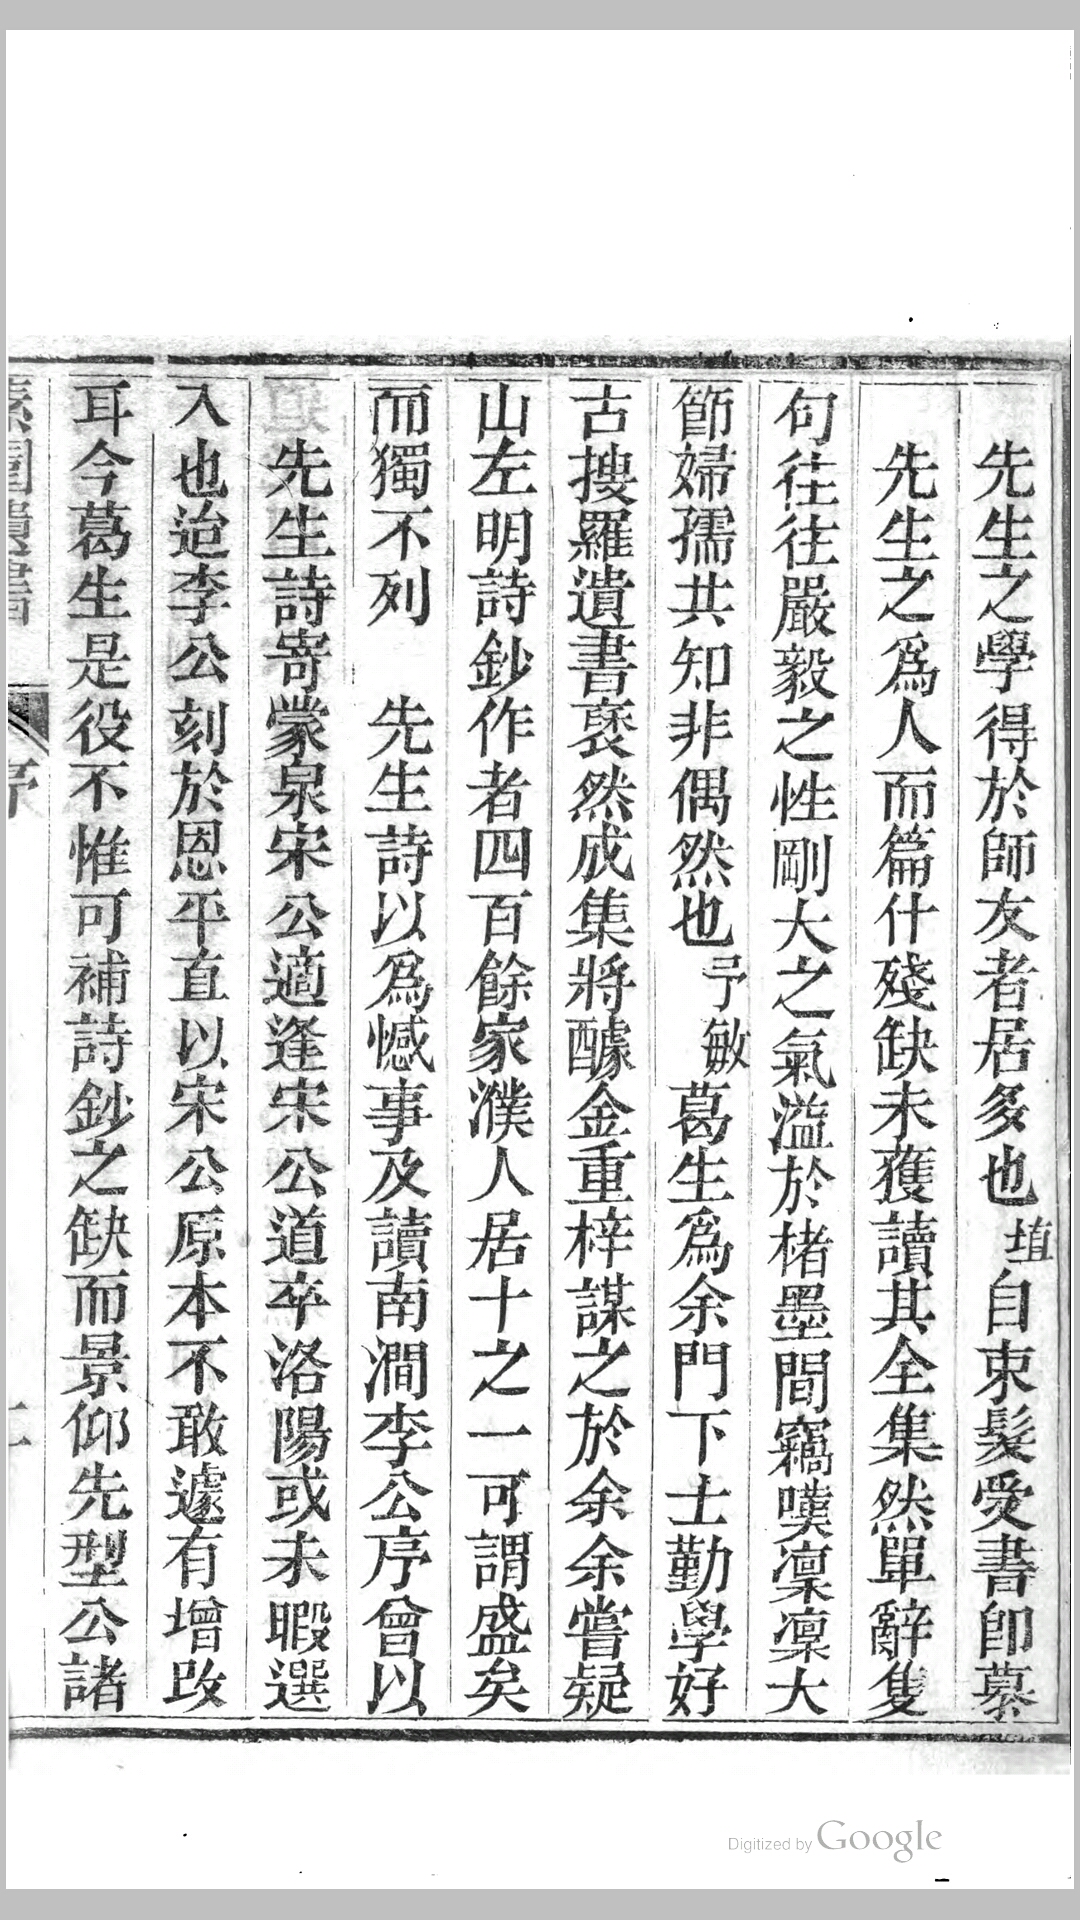 先生之學得於師友者居多也埴自束髮受書即慕
先生之爲人而篇什殘缺未獲讀其全集然單辭隻
句往往嚴毅之性剛大之氣溢於楮墨間竊嘆凜凜大
節婦孺共知非偶然也予敏葛生爲余門下士勤學好
古搜羅遺書裒然成集將醵金重梓謀之於余余嘗疑
山左明詩鈔作者四百餘家濮人居十之一可謂盛矣
而獨不列　先生詩以爲憾事及讀南澗李公序曾以
先生詩寄蒙泉宋公適逢宋公道卒洛陽或未暇選
入也迨李公刻於恩平直以宋公原本不敢遽有增改
耳今葛生是役不惟可補詩鈔之缺而景仰先型公諸
序
二
Digitized by Google